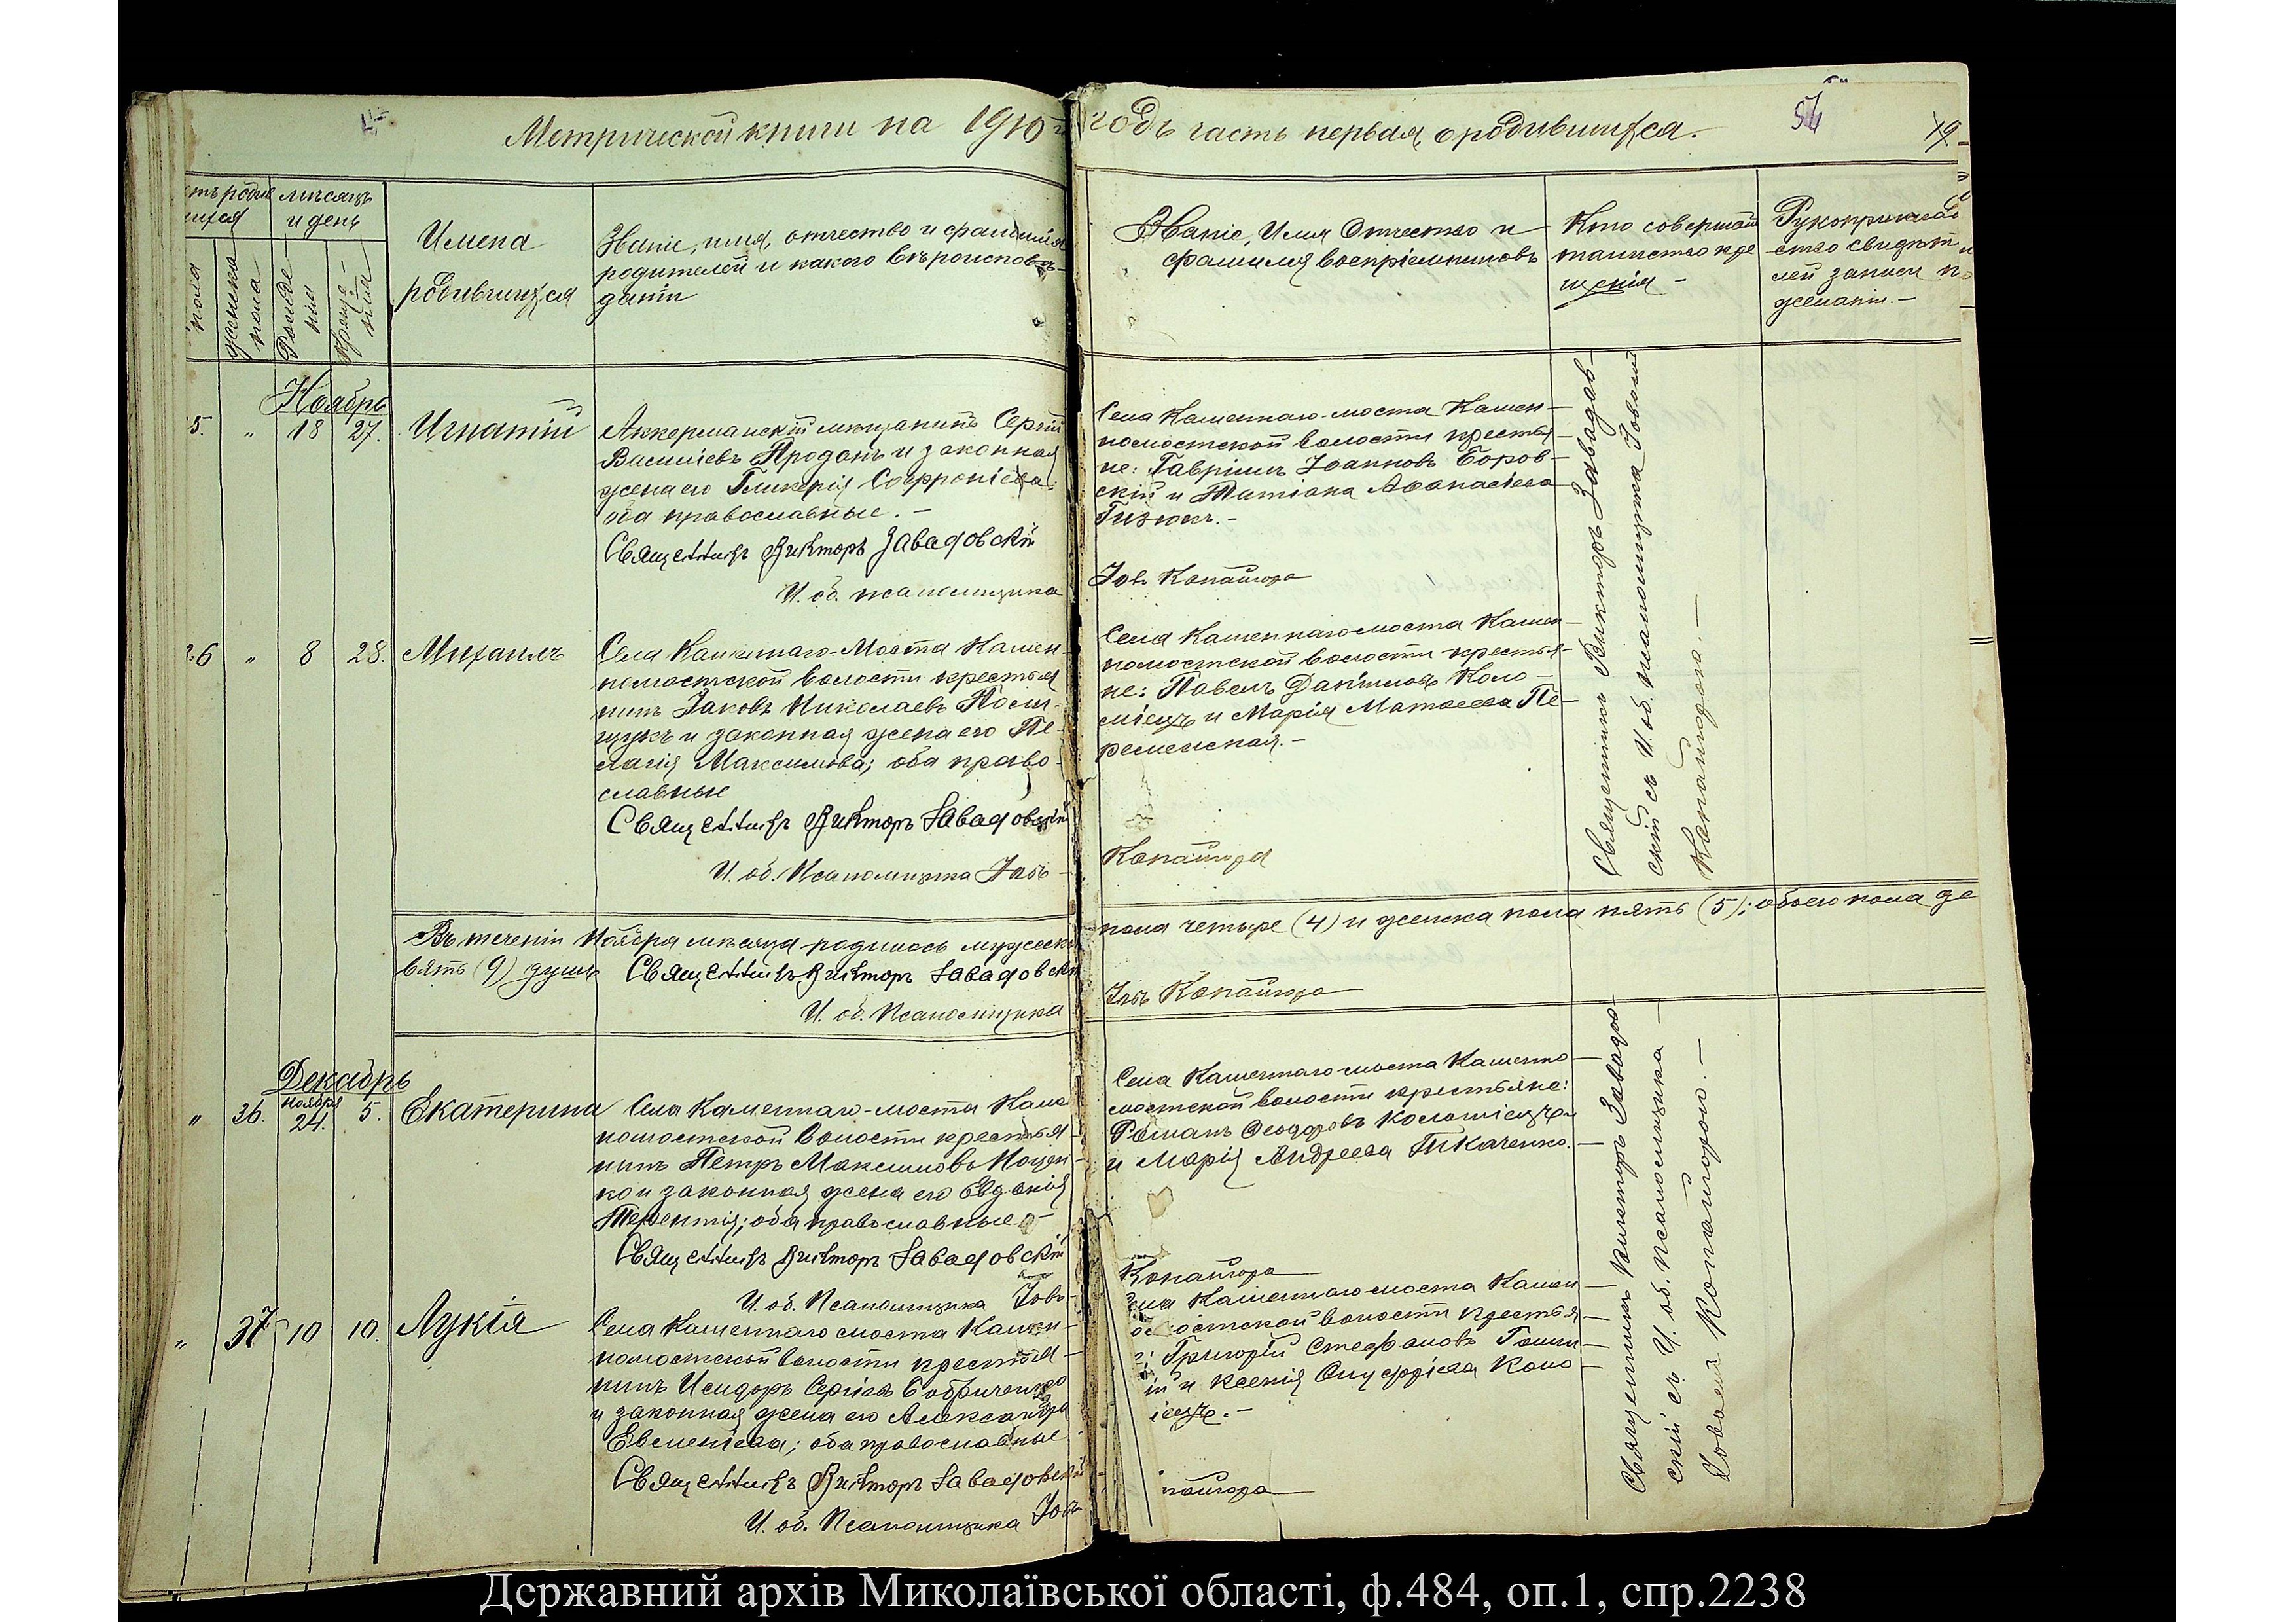 Метрической книги на 1910 годъ часть первая, о родившихся.
мѣсяцъ
и день
женска
пола
Рожде-
нія
Креще-
нія
Имена
родившихся
Званіе, имя, отчество и фамилія
родителей и какого вѣроисповѣ-
данія
Званіе, Имя Отчество и
фамилия воспріемниковъ
Кто совершалъ
таинство кре
щенія -
Рукоприклад
ство свидѣт
лей записи по
желанію. -
Ноябрь
5. " 18 27. Игнатій
Аккерманскій мѣщанинъ Сергій
Василіевъ Проданъ и законная
жена его Гликерія Софроніева;
оба православные. -
Священникъ Викторъ Завадовскій
И. об. псаломщика
Села Каменнаго-моста Камен-
номостской волости крестья-
не: Гавріилъ Іоанновъ Боров-
скій и Татіана Аѳанасіева
Іовъ Копайгора
6 " 8 28. Михаилъ
Села Каменнаго-Моста Камен-
номостской волости крестья
нинъ Іаковъ Николаевъ Поли-
щукъ и законная жена его Пе-
лагія Максимова; оба право-
славные
Священникъ Викторъ Завадовскій
И. об. Псаломщика Іовъ
Села Каменнаго моста Камен-
номостской волости крестья-
не: Павелъ Даніиловъ Коло-
міецъ и Марія Матѳеева Пе-
Копайгора
Священникъ Викторъ Завадов-
скій съ И. об. псаломщика Іовомъ
Копайгорою. -
Въ теченіи Ноября мѣсяца родилось мужеска пола четыре (4) и женска пола пять (5); обоего пола де
вять (9) душъ Священникъ Викторъ Завадовскій
И. об. Псаломщика Іовъ Копайгора
Декабрь
" 36. ноября 24. 5. Екатерина
Села Каменнаго-моста Камен
номостской волости крестья-
нинъ Петръ Максимовъ
ко и законная жена его Евдокія
Терентія; оба православные. -
Священникъ Викторъ Завадовскій
И. об. Псаломщика Іовъ
Села Каменнаго моста Каменно-
мостской волости крестьяне:
Романъ Ѳеодоровъ Коломіецъ
и Марія Андреева Ткаченко. -
Копайгора
" 37 10 10. Лукія
Села Каменнаго моста Камен-
номостской волости крестья-
нинъ Исидоръ Сергіевъ
и законная жена его Александра
Евменіева; оба православные
Священникъ Викторъ Завадовскій
И. об. Псаломщика Іовъ
Села Каменнаго моста Камен-
омостской волости крестья-
Григорій Стефановъ
ій и Ксенія Онуфріева Коло-
іецъ. -
пайгора
Священникъ Викторъ Завадов-
скій съ И. об. псаломщика -
Іовомъ Копайгорою. -
Державний архів Миколаївської області, ф.484, оп.1, спр.2238